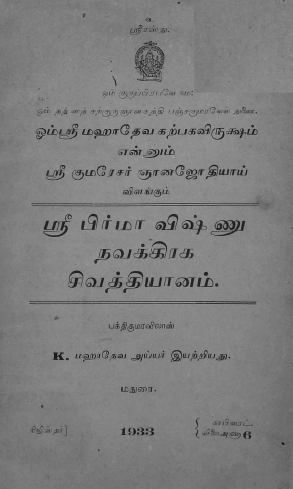 உ
ஸ்ரீரஸ்து.
ஓம் குருப்பிரமணே நம:
ஓம் தத் ஸத் சற்குருஞானசத்தி பஞ்சகுமரவேல் துணை.
ஓம்ஸ்ரீ மஹாதேவ கற்பகவிருக்ஷம்
என்னும்
ஸ்ரீ குமரேசர் ஞானஜோதியாய்
விளங்கும்
ஸ்ரீ பிர்மா விஷ்ணு
நவக்கிரக
சிவத்தியானம்.
பக்திகுமரவிலாஸ்
K. மஹாதேவ அய்யர் இயற்றியது.
மதுரை.
ரிஜிஸ்தர்] 1933 { காபிரைட். விலைஅணா 6